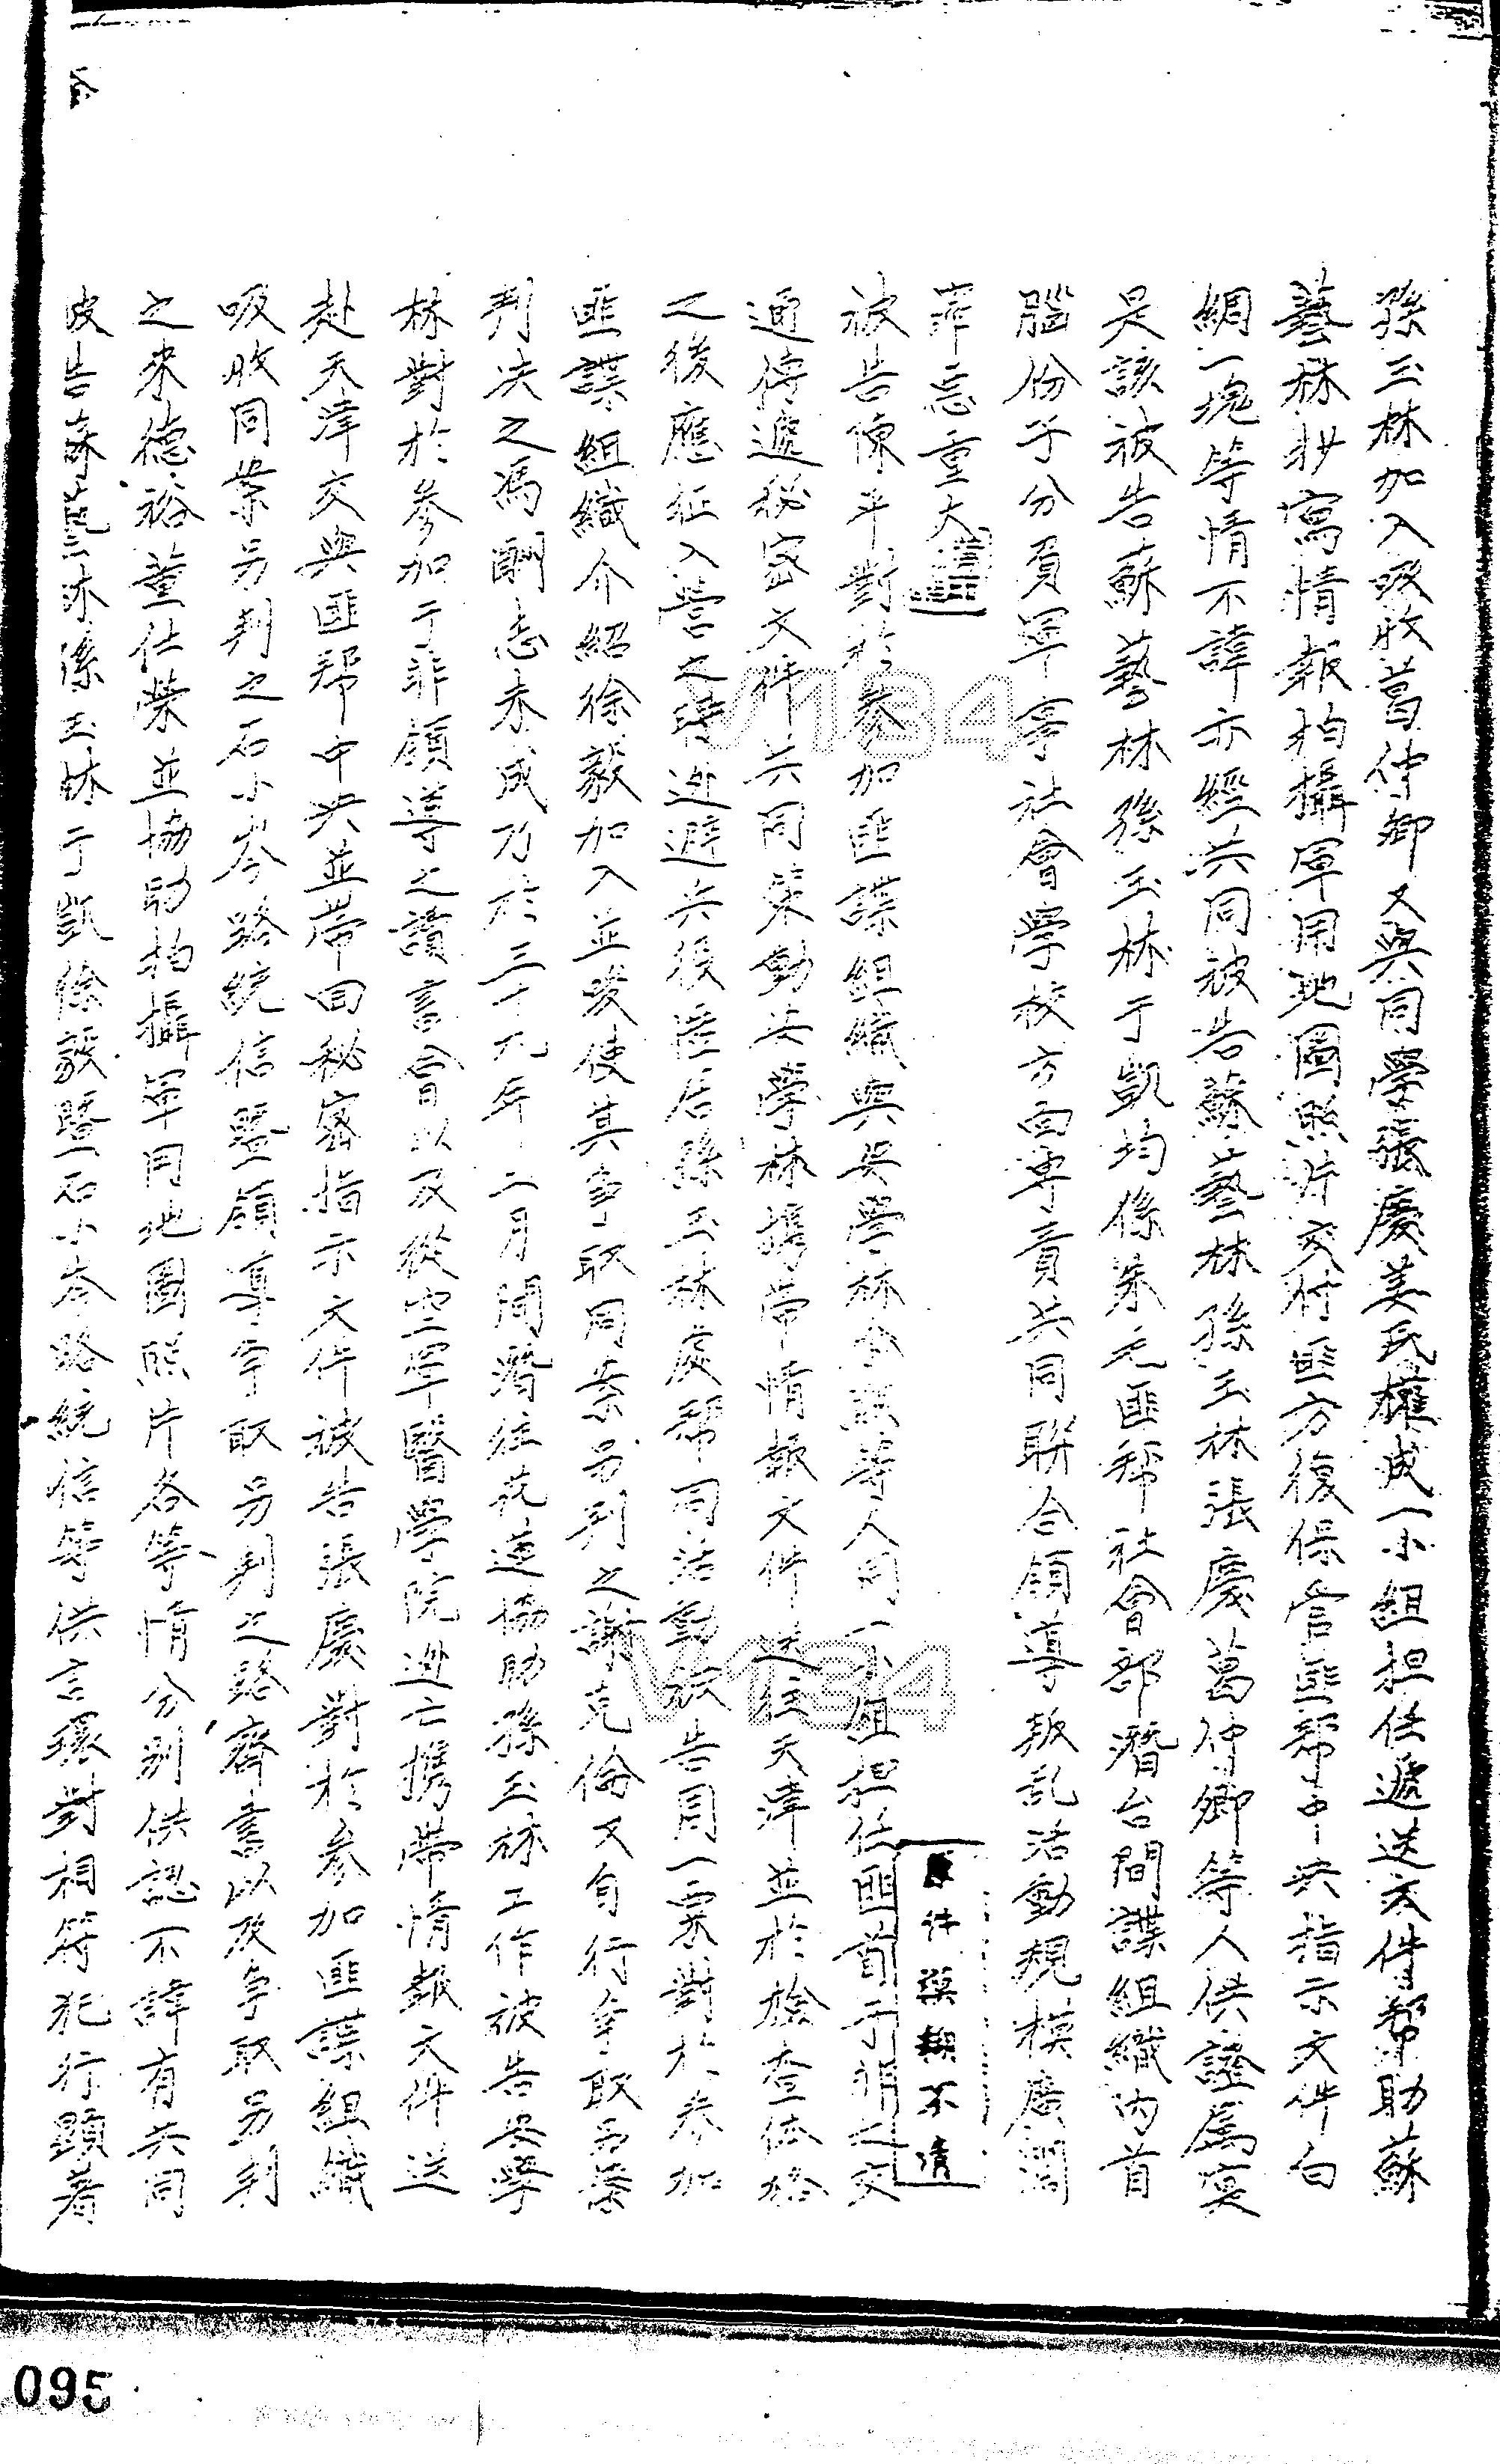 孫玉林加入吸收葛仲卿又與同學張慶姜民權成一小組担任遞送文件幫助蘇
藝林抄寫情報拍攝軍用地圖照片交付匪方復保管匪幫中共指示文件白
綢一塊等情不諱亦經共同被告蘇藝林孫玉林張慶葛仲卿等人供證屬實
是該被告蘇藝林孫玉林于凱均係朱毛匪幫社會部潛台間諜組織內首
腦份子分負軍事社會學校方面專責共同聯合領導叛乱活動規模廣濶
罪惡重大
原件模糊不清
被告陳平對於參加匪諜組織與吳學林等人同一小組担任匪首于凱之交
通傳遞秘密文件共同策動吳學林携帶情報文件送往天津並於檢查体格
之後應征入營之時逃避兵役隱居孫玉林處幫同活動被告同一案對於參加
匪諜組織介紹徐毅加入並發使其爭取同案另判之謝克倫又自行爭取另案
判决之馮酬志未成乃於三十九年十二月間潛往花蓮協助孫玉林工作被告吳學
林對於參加于非領導之讀書會以及從空軍醫學院逃亡携帶情報文件送
赴天津交與匪幫中共並帶回秘密指示文件被告張慶對於參加匪諜組織
吸收同案另判之石小岑路統信暨領導爭取另判之路齊書以及爭取另判
之來德裕董仕榮並協助拍攝軍用地圖照片各等情分別供認不諱有共同
被告蘇藝林孫玉林于凱徐毅暨石小岑路統信等供言環對相符犯行顯著
V134
V134
095